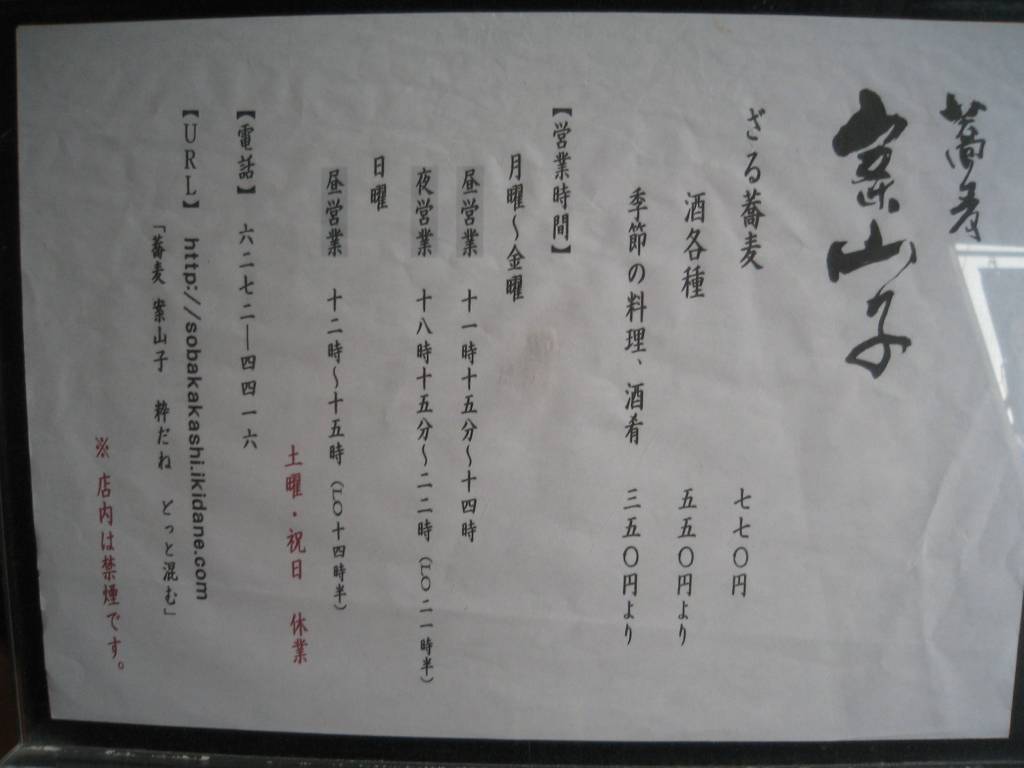 蕎麦
案山子
ざる蕎麦 七七〇円
酒各種 五五〇円より
季節の料理、酒肴 三五〇円より
【営業時間】
月曜～金曜
昼営業 十一時十五分～十四時
夜営業 十八時十五分～二二時（LO二一時半）
日曜
昼営業 十二時～十五時（LO十四時半）
土曜・祝日 休業
【電話】 六二七二―四四一六
【URL】 http://sobakakashi.ikidane.com
「蕎麦 案山子 粋だね どっと混む」
※ 店内は禁煙です。